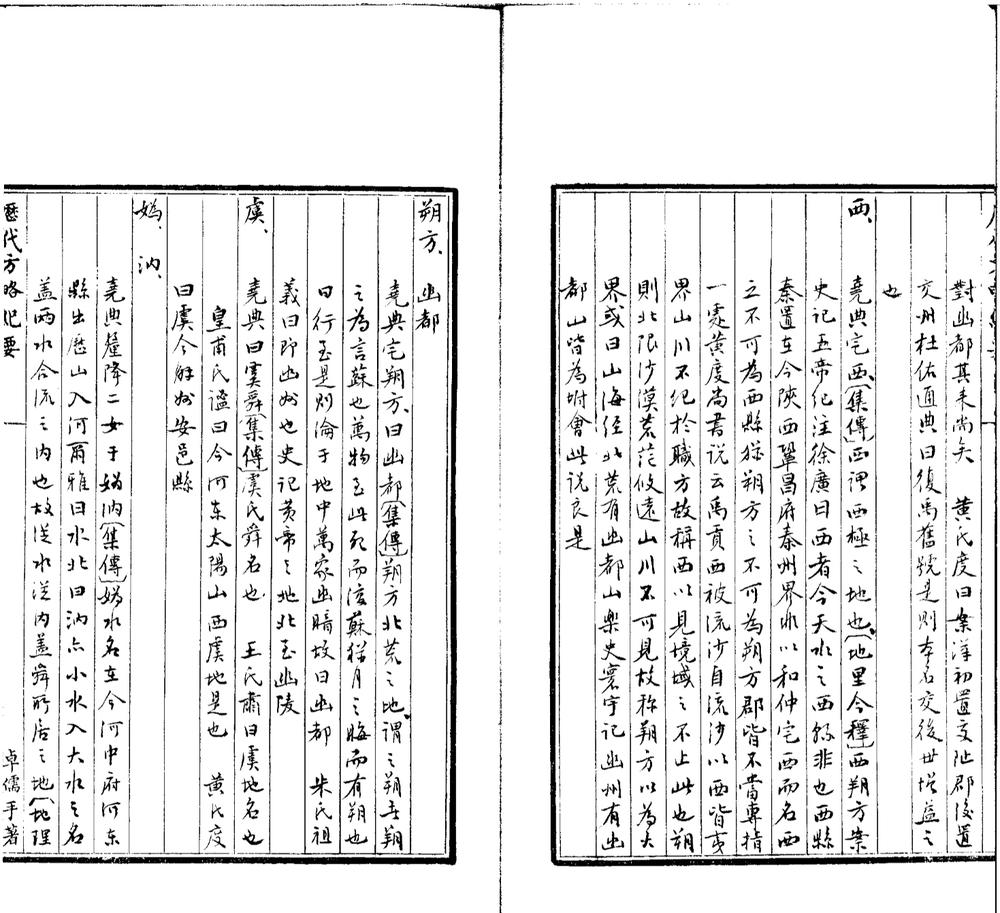 對幽都其来尚矣　黄氏度曰案漢初置交阯郡後置
交州杜佑通典曰復禹舊號是則本名交後世增益之
也
西、
堯典宅西、〔集傳〕西謂西極之地也、〔地里今釋〕西朔方案
史记五帝纪注徐廣曰西者今天水之西縣非也西縣
秦置在今陝西鞏昌府秦州界非以和仲宅西而名西
之不可為西縣猶朔方之不可為朔方郡皆不當專指
一處黄度尚書说云禹貢西被流沙自流沙以西皆夷
界山川不纪於職方故稱西以見境域之不止此也朔
則北限沙漠荒茫攸遠山川不可見故称朔方以為大
界或曰山海经北荒有幽都山樂史寰宇记幽州有幽
都山皆為坿會此说良是
朔方、幽都
堯典宅朔方、曰幽都〔集傳〕朔方北荒之地、謂之朔者朔
之為言蘇也萬物至此死而復蘇猶月之晦而有朔也
日行至是則淪于地中萬象幽暗故曰幽都　朱氏祖
義曰即幽州也史记黄帝之地北至幽陵
虞、
堯典曰虞舜〔集傳〕虞氏舜名也　王氏肅曰虞地名也
皇甫氏谧曰今河东太陽山西虞地是也　黄氏度
曰虞今解州安邑縣
媯、汭、
堯典釐降二女于媯汭〔集傳〕媯水名在今河中府河东
縣出歷山入河爾雅曰水北曰汭亦小水入大水之名
蓋两水合流之内也故從水從内蓋舜所居之地〔地理
歷代方略纪要
一
卓儒手著